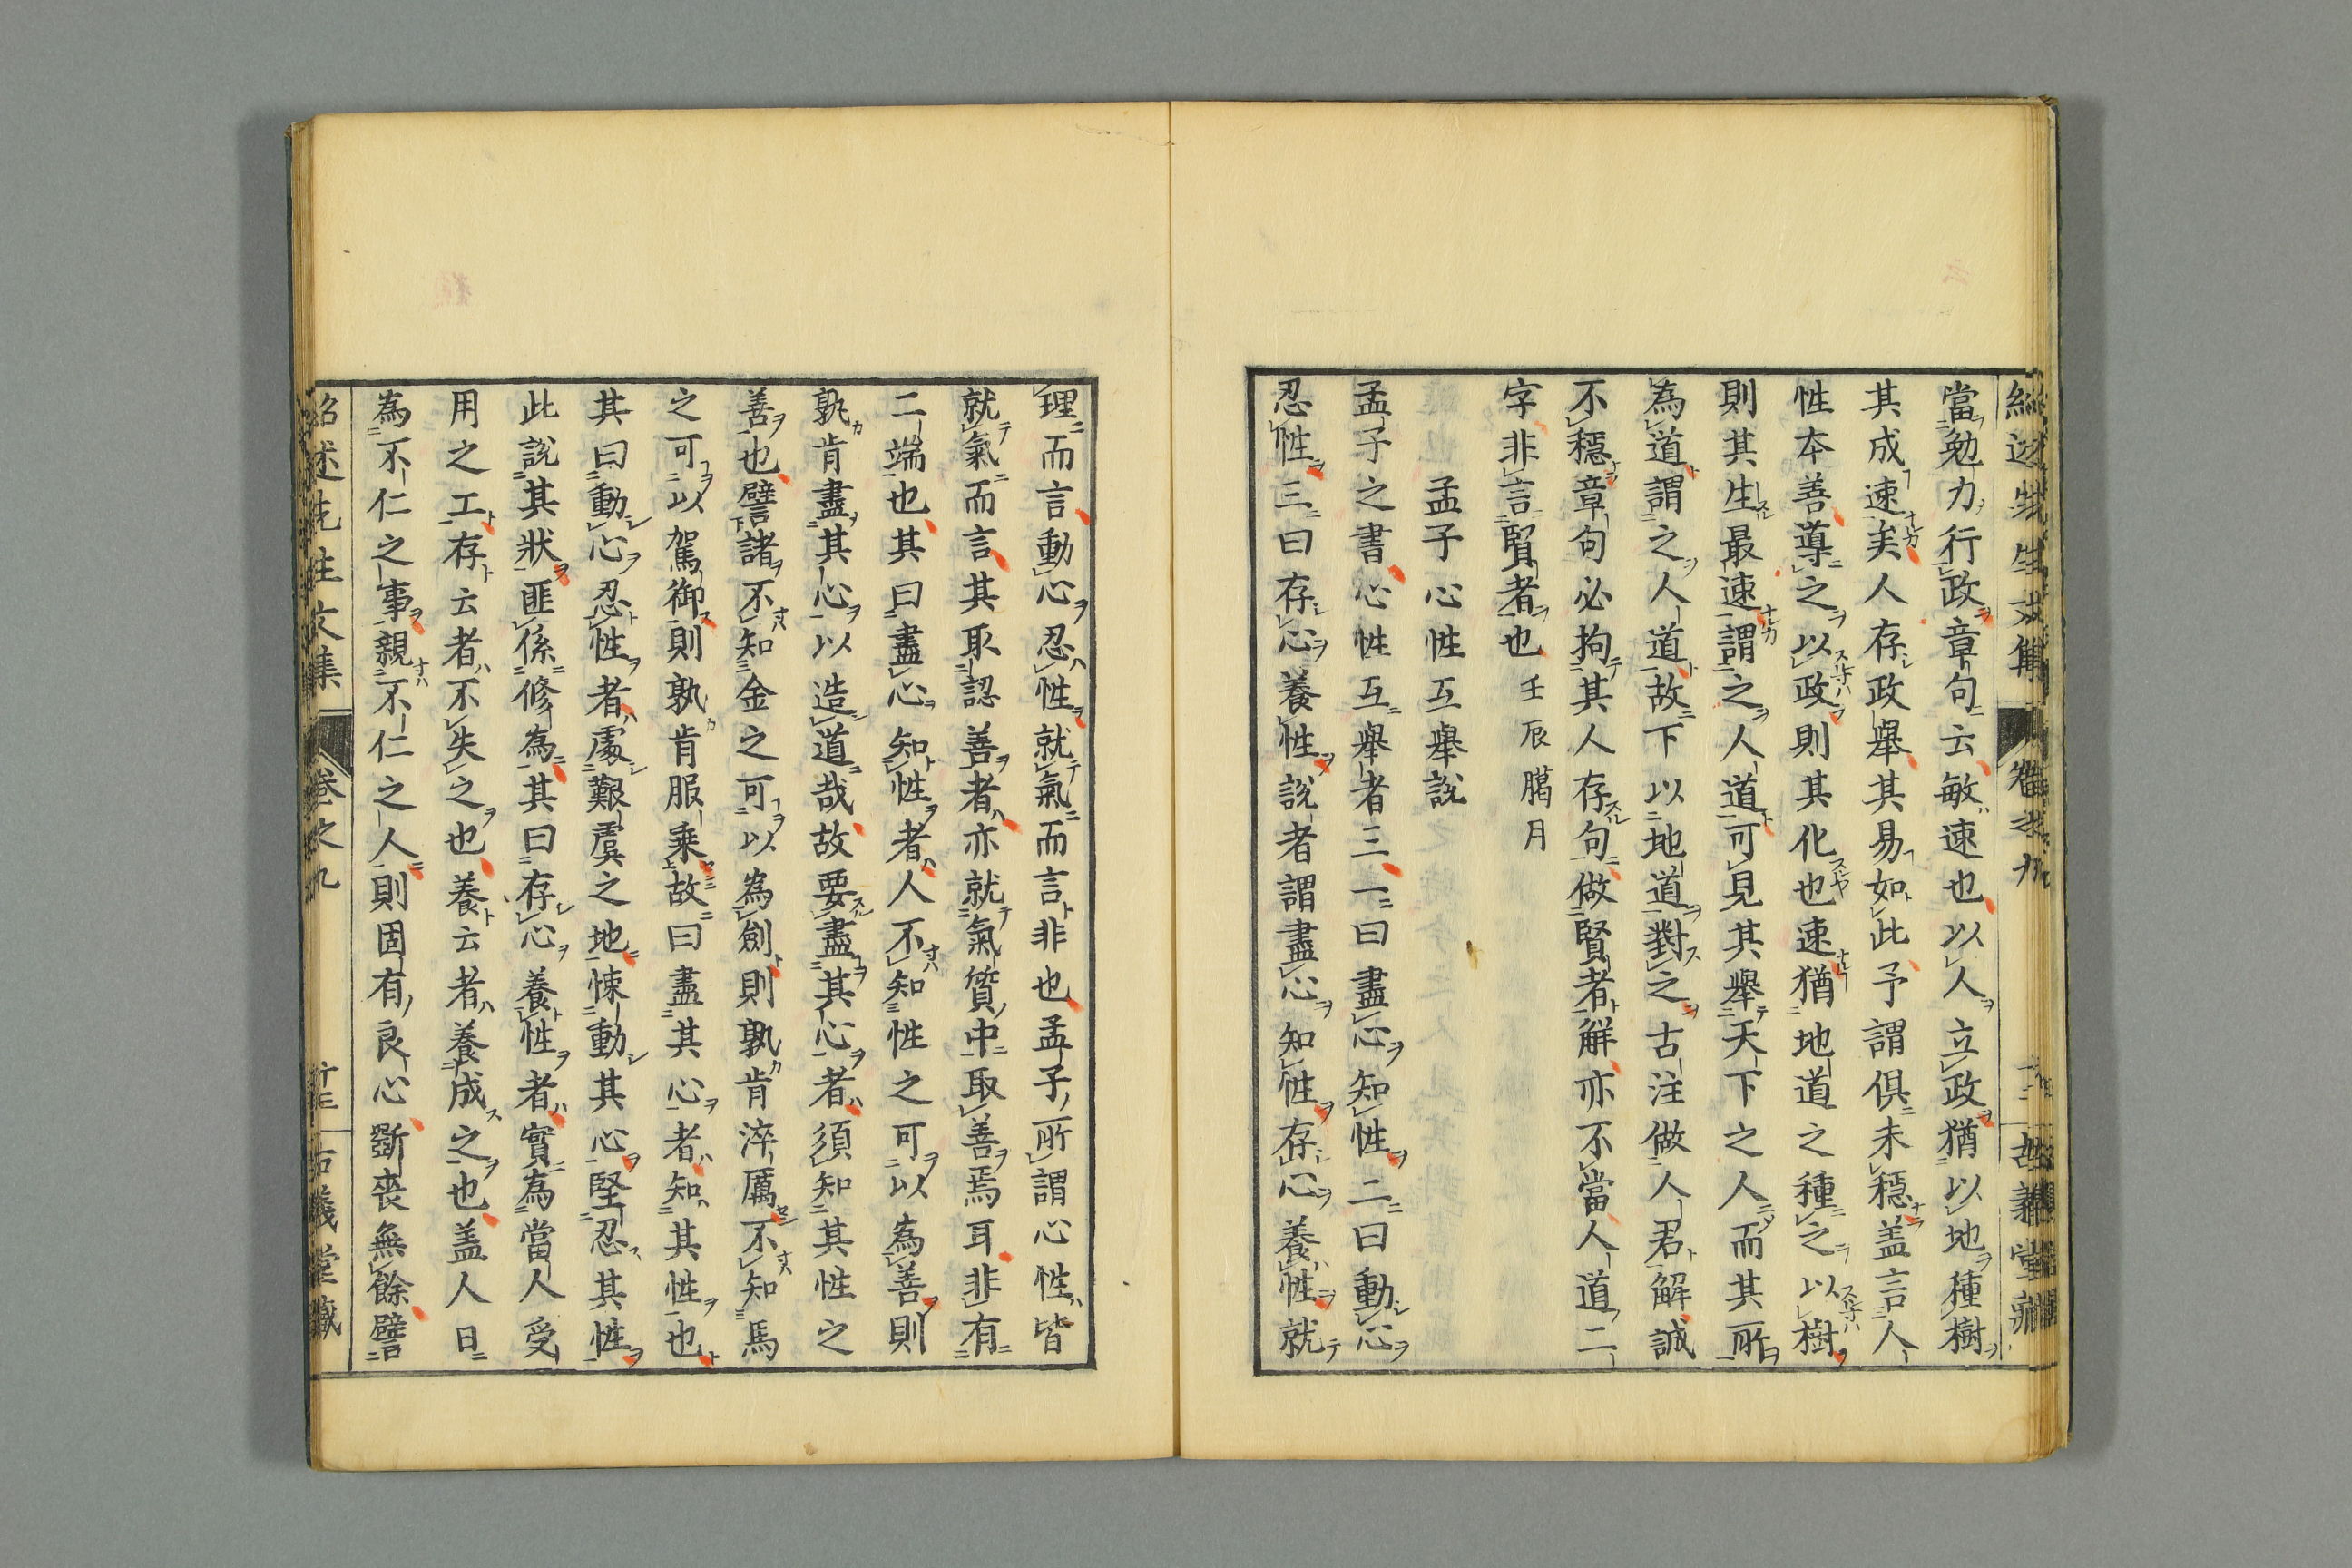 當勉力行政章句云敏速也以人立政猶以地種樹
其成速矣人存政舉其易如此予謂俱未穩盖言人
性本善導之以政則其化也速猶地道之種之以樹
則其生最速謂之人道可見其舉天下之人而其所
為道謂之人道故下以地道對之古注做人君解誠
不穩章句必拘其人存句做賢者解亦不當人道二
字非言賢者也 壬辰臈月
孟子心性互舉說
孟子之書心性互舉者三一曰盡心知性二曰動心
忍性三曰存心養性說者謂盡心知性存心養性就
理而言動心忍性就氣而言非也孟子所謂心性皆
就氣而言其取認善者亦就氣質中取善焉耳非有
二端也其曰盡心知性者人不知性之可以為善則
孰肯盡其心以造道哉故要盡其心者須知其性之
善也譬諸不知金之可以為劍則孰肯淬厲不知馬
之可以駕御則孰肯服乘故曰盡其心者知其性也
其曰動心忍性者處艱虞之地悚動其心堅忍其性
此說其狀匪係修為其曰存心養性者實為當人受
用之工存云者不失之也養云者養成之也盖人日
為不仁之事親不仁之人則固有良心斲喪無餘譬
紹述先生文集 卷之九 十三 古義堂藏